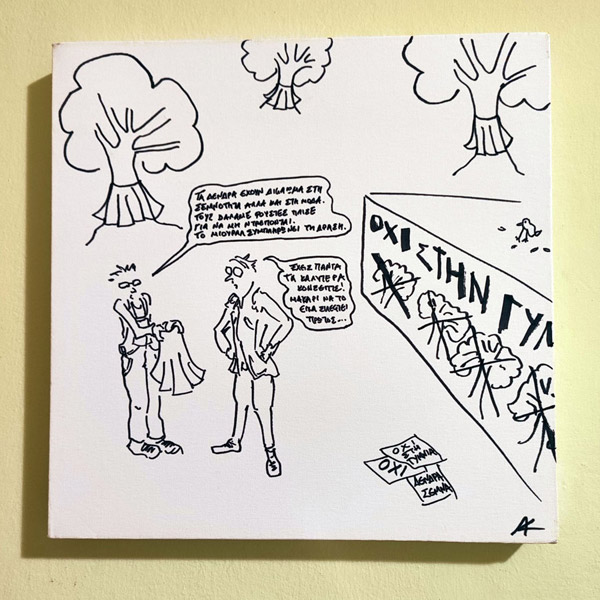 ΤΑ ΔΕΝΔΡΑ ΕΧΟΥΝ ΔΙΚΑΙΩΜΑ ΣΤΗ
ΣΕΜΝΟΤΗΤΑ ΑΛΛΑ ΚΑΙ ΣΤΗ ΜΟΔΑ.
ΤΟΥΣ ΒΑΛΑΜΕ ΦΟΥΣΤΕΣ
ΓΙΑ ΝΑ ΜΗ ΝΤΡΕΠΟΝΤΑΙ.
ΤΟ ΜΙΟΥΡΑΛ ΣΥΜΠΛΗΡΩΝΕΙ ΤΗ ΔΡΑΣΗ.
ΕΧΕΙΣ ΠΑΝΤΑ
ΤΑ ΚΑΛΥΤΕΡΑ
ΚΟΝΣΕΠΤΣ!
ΜΑΚΑΡΙ ΝΑ ΤΟ
ΕΙΧΑ ΣΚΕΦΤΕΙ
ΠΡΩΤΟΣ...
ΟΧΙ ΣΤΗΝ ΓΥΜ
ΟΧΙ
ΣΤΗ
ΓΥΜΝΙΑ
ΟΧΙ
ΔΕΝΔΡΑ
ΣΕΜΝΑ
ΑΚ